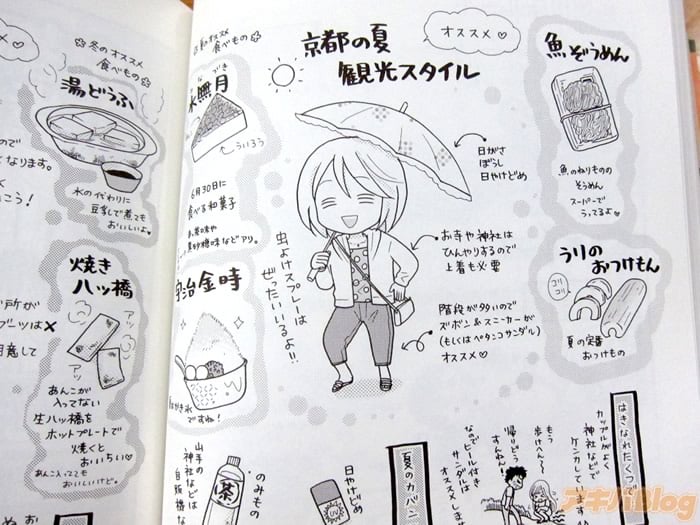 京都の夏
観光スタイル
オススメ♡
魚ぞうめん
魚のねりものの
そうめん
スーパーで
うってるよ♡
うりの
おつけもん
コリ
コリ
夏の定番
おつけもの
日がさ
ぼうし
日やけどめ
お寺や神社は
ひんやりするので
上着も必要
階段が多いので
ズボン&スニーカーが
(もしくはペタンコサンダル)
オススメ♡
虫よけスプレーは
ぜったいいるよ!!
食べもの
水無月
ういろう
6月30日に
食べる和菓子
黒砂糖味などアリ。
宇治金時
ですね!
冬のオススメ
食べもの
湯どうふ
水の代わりに
豆乳で煮ても
おいしいよ♡
焼き
八ッ橋
アツ
アツ
あんこが
入ってない
生八ッ橋を
ホットプレートで
焼くと
おいちい♡
あんこ入ってても
おいしいけど。
くなります。
こう!
所が
ブーツは×
意して
はきなれたくつ
カップルがよく
神社などで
ケンカしています
もう
歩けへん〜
帰りどう
すんねん!
なのでヒール付き
サンダルは
オススメしま
夏のカバン
日やけどめ
のみもの
茶
山手の
神社などは
自販機
アキバBlog